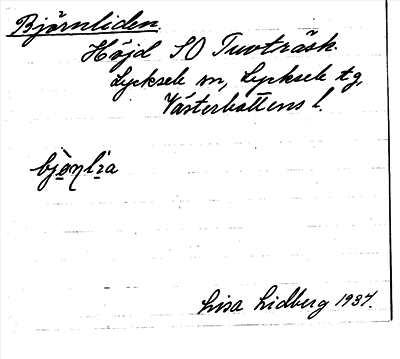 Björnliden.
Höjd SO Tuvträsk.
Lycksele sn, Lycksele tg,
Västerbottens l.
Lisa Lidberg 1937.